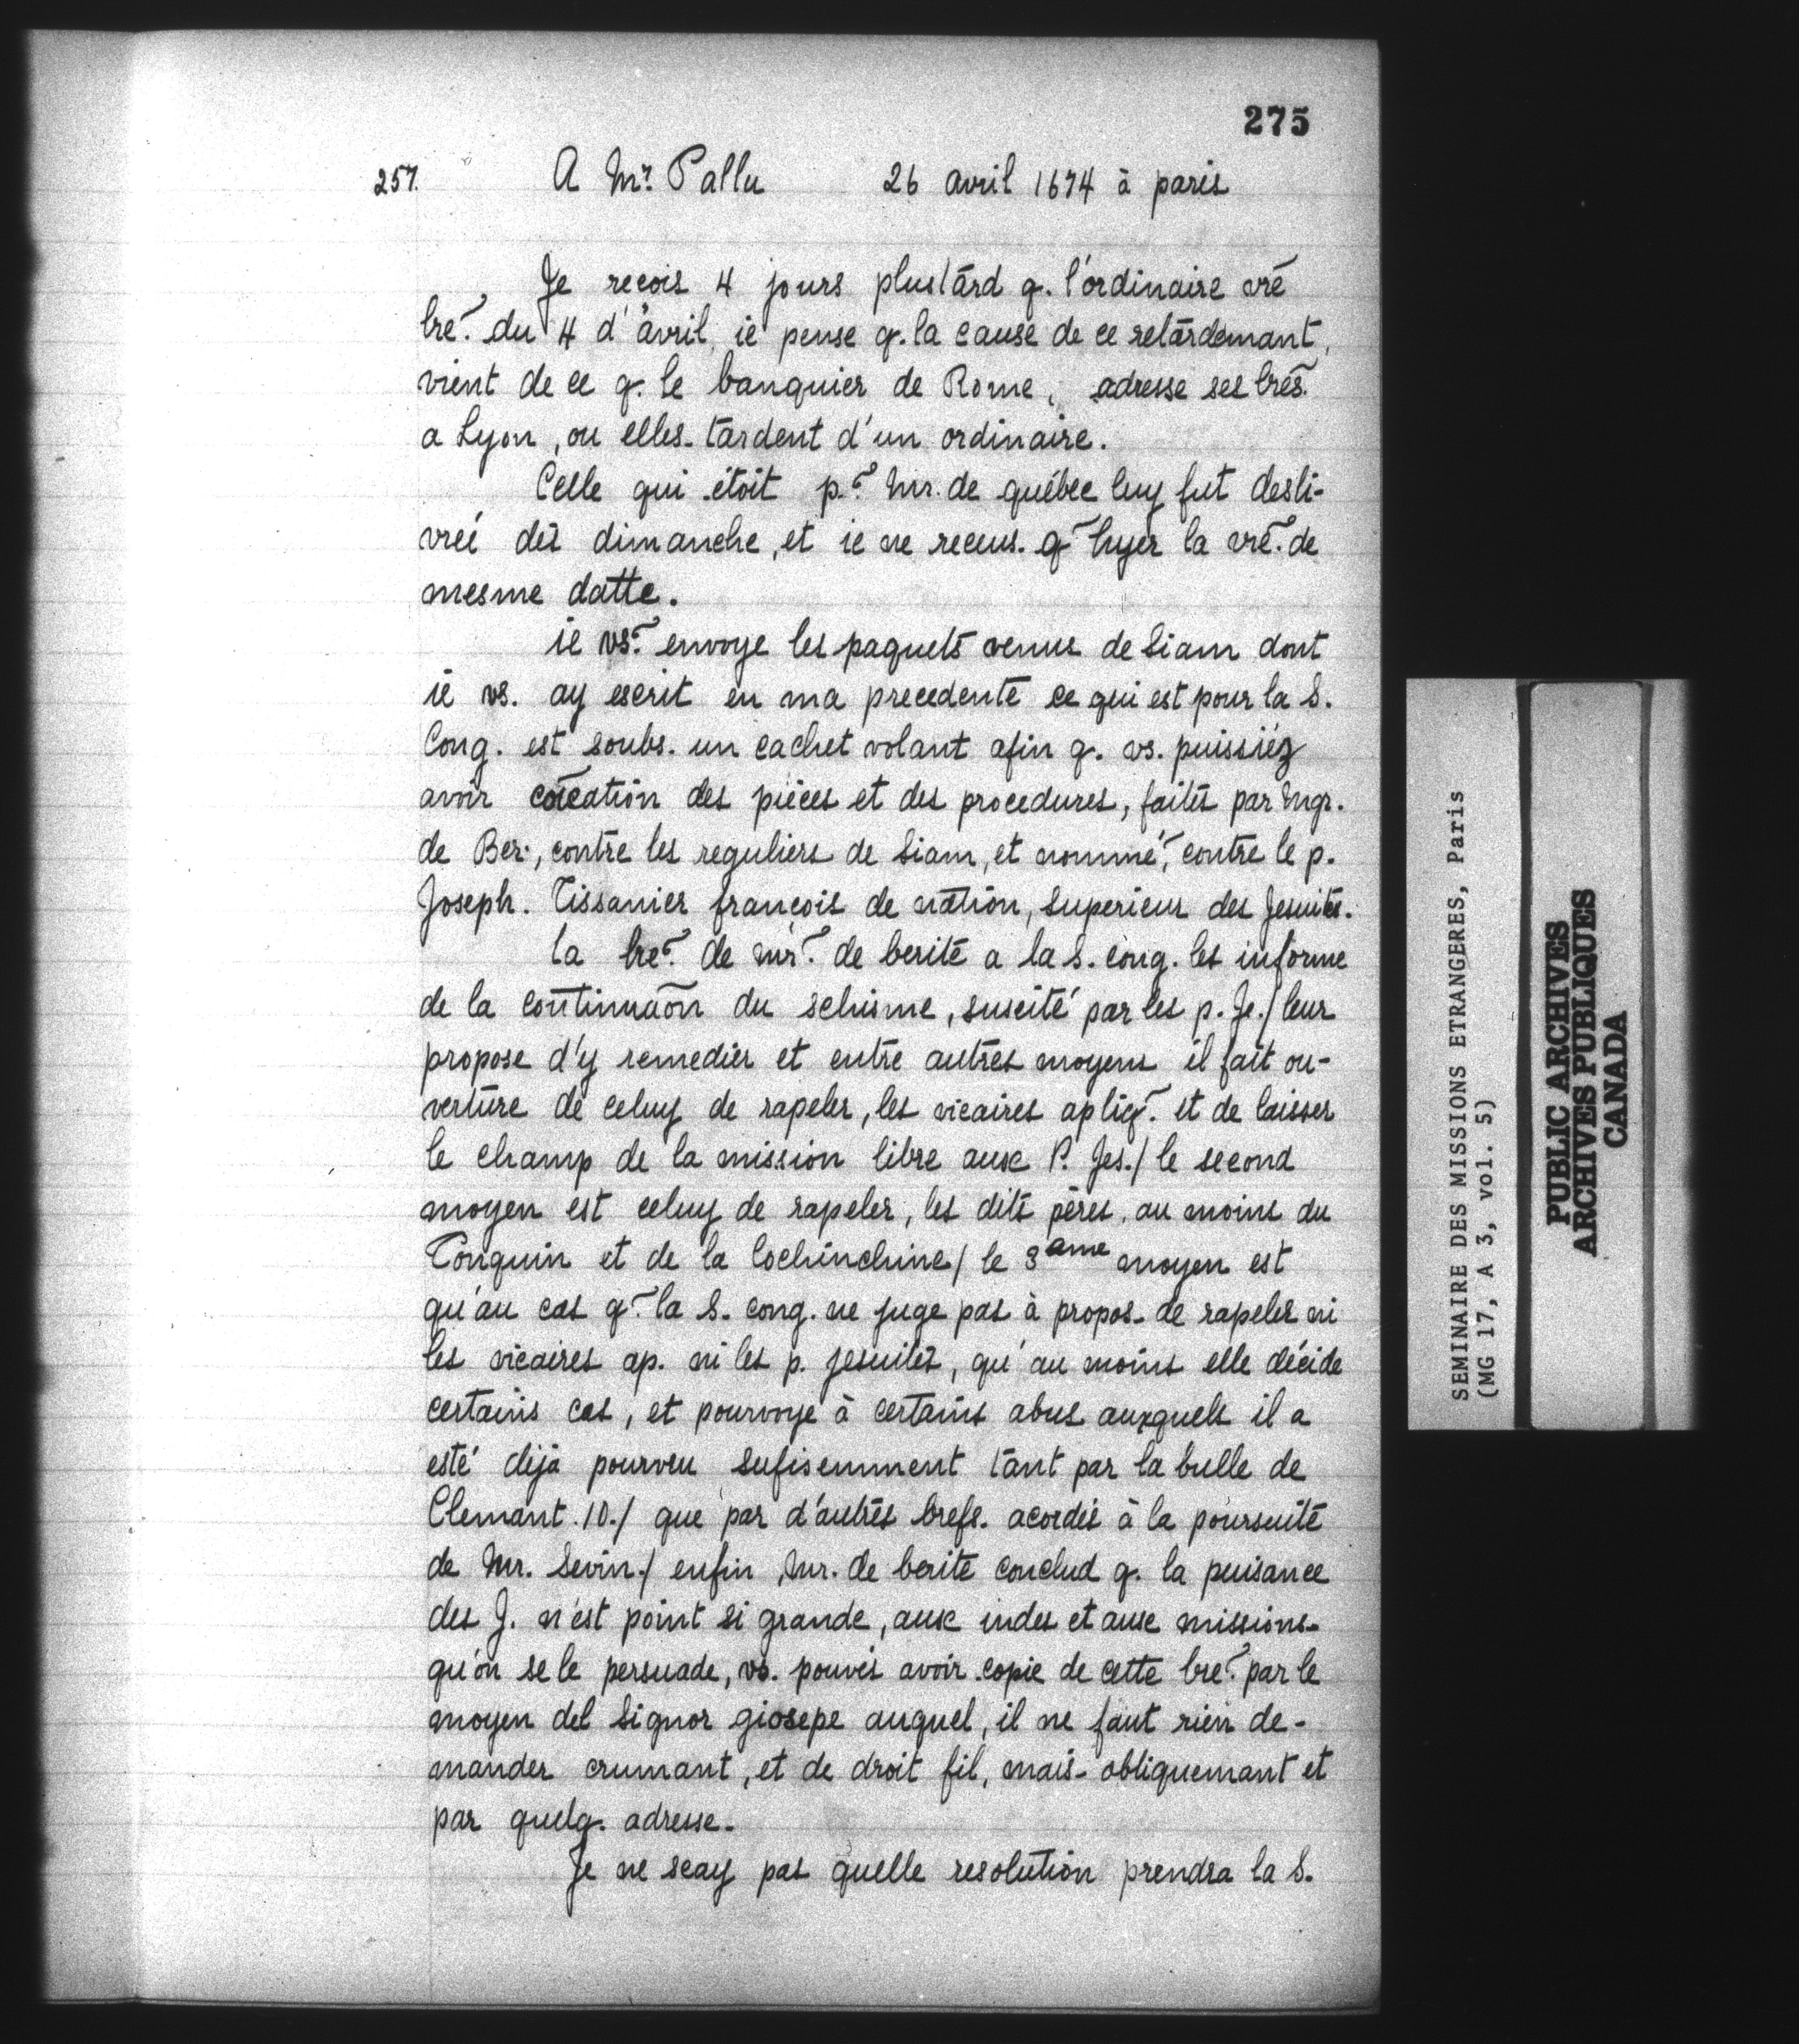 275
257. A Mr. Pallu 26 avril 1674 à paris
Je reçois 4 jours plustard q. l'ordinaire vrē
lrē. du 4 d'avril, ie pense q. la cause de ce retardemant,
vient de ce q. le banquier de Rome, adresse ses lrēs.
a Lyon, ou elles tardent d'un ordinaire.
Celle qui étoit p.r Mr. de québec luy fut desli-
vreé dès dimanche, et ie ne receus. q̄ hyer la vrē. de
mesme datte.
ie vs. envoye les paquets venus de Siam dont
ie vs. ay escrit en ma precedente ce qui est pour la S.
Cong. est soubs. un cachet volant afin q. vs. puissiéz
avoir cōīcation des pièces et des procedures, faites par Mgr.
de Ber., contre les reguliers de Siam, et nommé, contre le p.
Joseph. Tissanier françois de nation, superieur des Jesuites.
la lrē. de mr. de berite a la S. cong. les informe
de la continuāon du schisme, suscité par les p. Je./ leur
propose d'y remedier et entre autres moyens il fait ou-
verture de celuy de rapeler, les vicaires apliq. et de laisser
le champ de la mission libre aux P. Jes./ le second
moyen est celuy de rapeler, les dits pères, au moins du
Tonquin et de la Cochinchine/ le 3ame moyen est
qu'au cas q. la S. cong. ne juge pas à propos de rapeler ni
les vicaires ap. ni les p. jesuites, qu'au moins elle décide
certains cas, et pourvoye à certains abus auxquels il a
esté déjà pourveu sufisemment tant par la bulle de
Clemant. 10./ que par d'autres brefs. acordés à la poursuite
de Mr. Sevin./ enfin, Mr. de berite conclud q. la puisance
des J. n'est point si grande, aux indes et aux missions
qu'on se le persuade, vs. pouvés avoir copie de cette lrē. par le
moyen del Signor giosepe auquel, il ne faut rien de-
mander crumant, et de droit fil, mais obliquemant et
par quelq. adresse.
Je ne scay pas quelle resolution prendra la S.
SEMINAIRE DES MISSIONS ETRANGERES, Paris
(MG 17, A 3, vol. 5)
PUBLIC ARCHIVES
ARCHIVES PUBLIQUES
CANADA